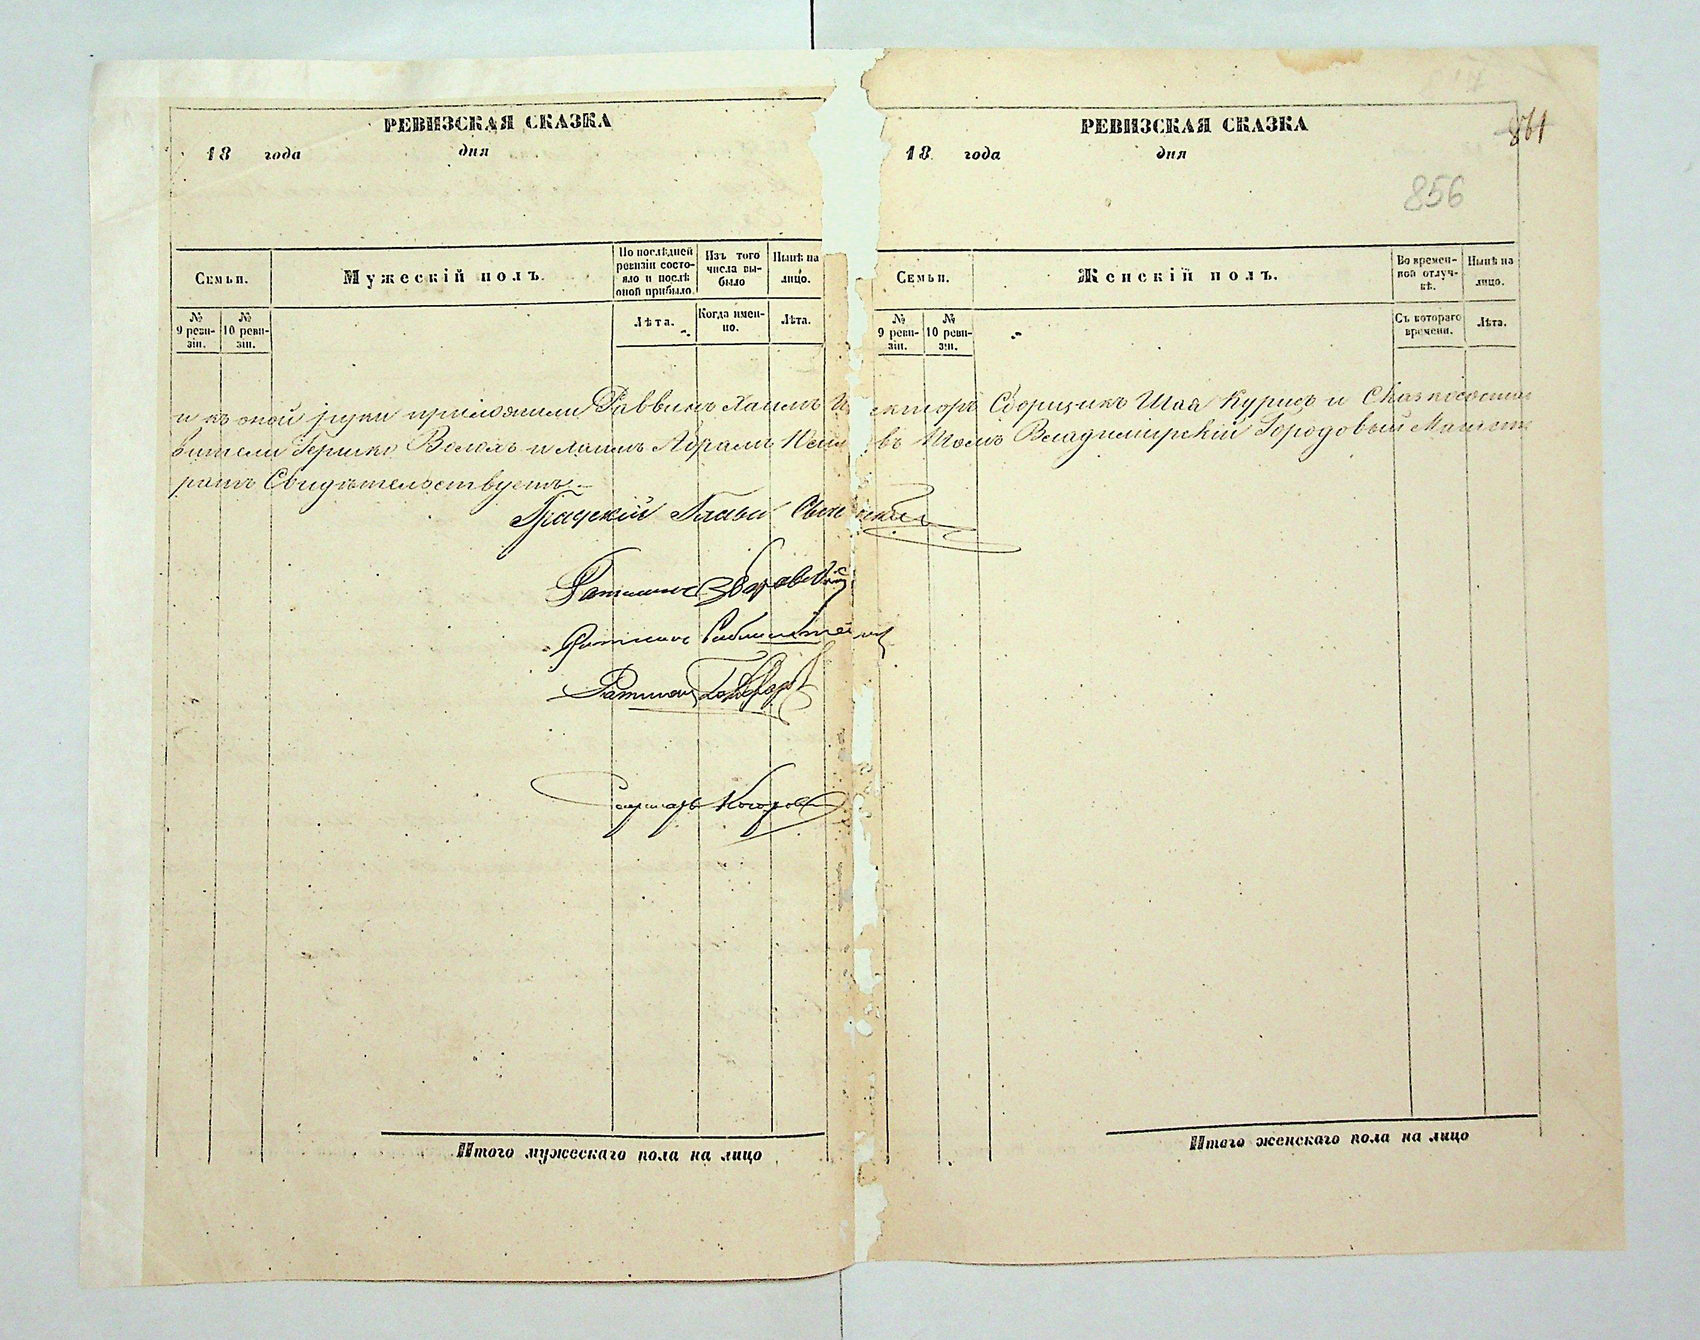 РЕВИЗСКАЯ СКАЗКА
18 года дня
Семьи.
Мужескій полъ.
По послѣдней ревизіи состояло и послѣ оной прибыло.
Изъ того числа выбыло
Нынѣ на лицо.
№ 9 ревизіи.
№ 10 ревизіи.
Лѣта.
Когда именно.
Лѣта.
РЕВИЗСКАЯ СКАЗКА
18 года дня
861
856
Семьи.
Женскій полъ.
Во временной отлучкѣ.
Нынѣ на лицо.
№ 9 ревизіи.
№ 10 ревизіи.
Съ котораго времени.
Лѣта.
и къ оной руки приложили Раввинъ Хаимъ Сборщикъ Шая Курисъ и Сказкососта
вители Гершко и въ томъ Владимирскій Городовый Магист
ратъ Свидѣтельствуетъ
Градскій Глава
Ратманъ
Ратманъ
Ратманъ
Итого мужескаго пола на лицо
Итого женскаго пола на лицо